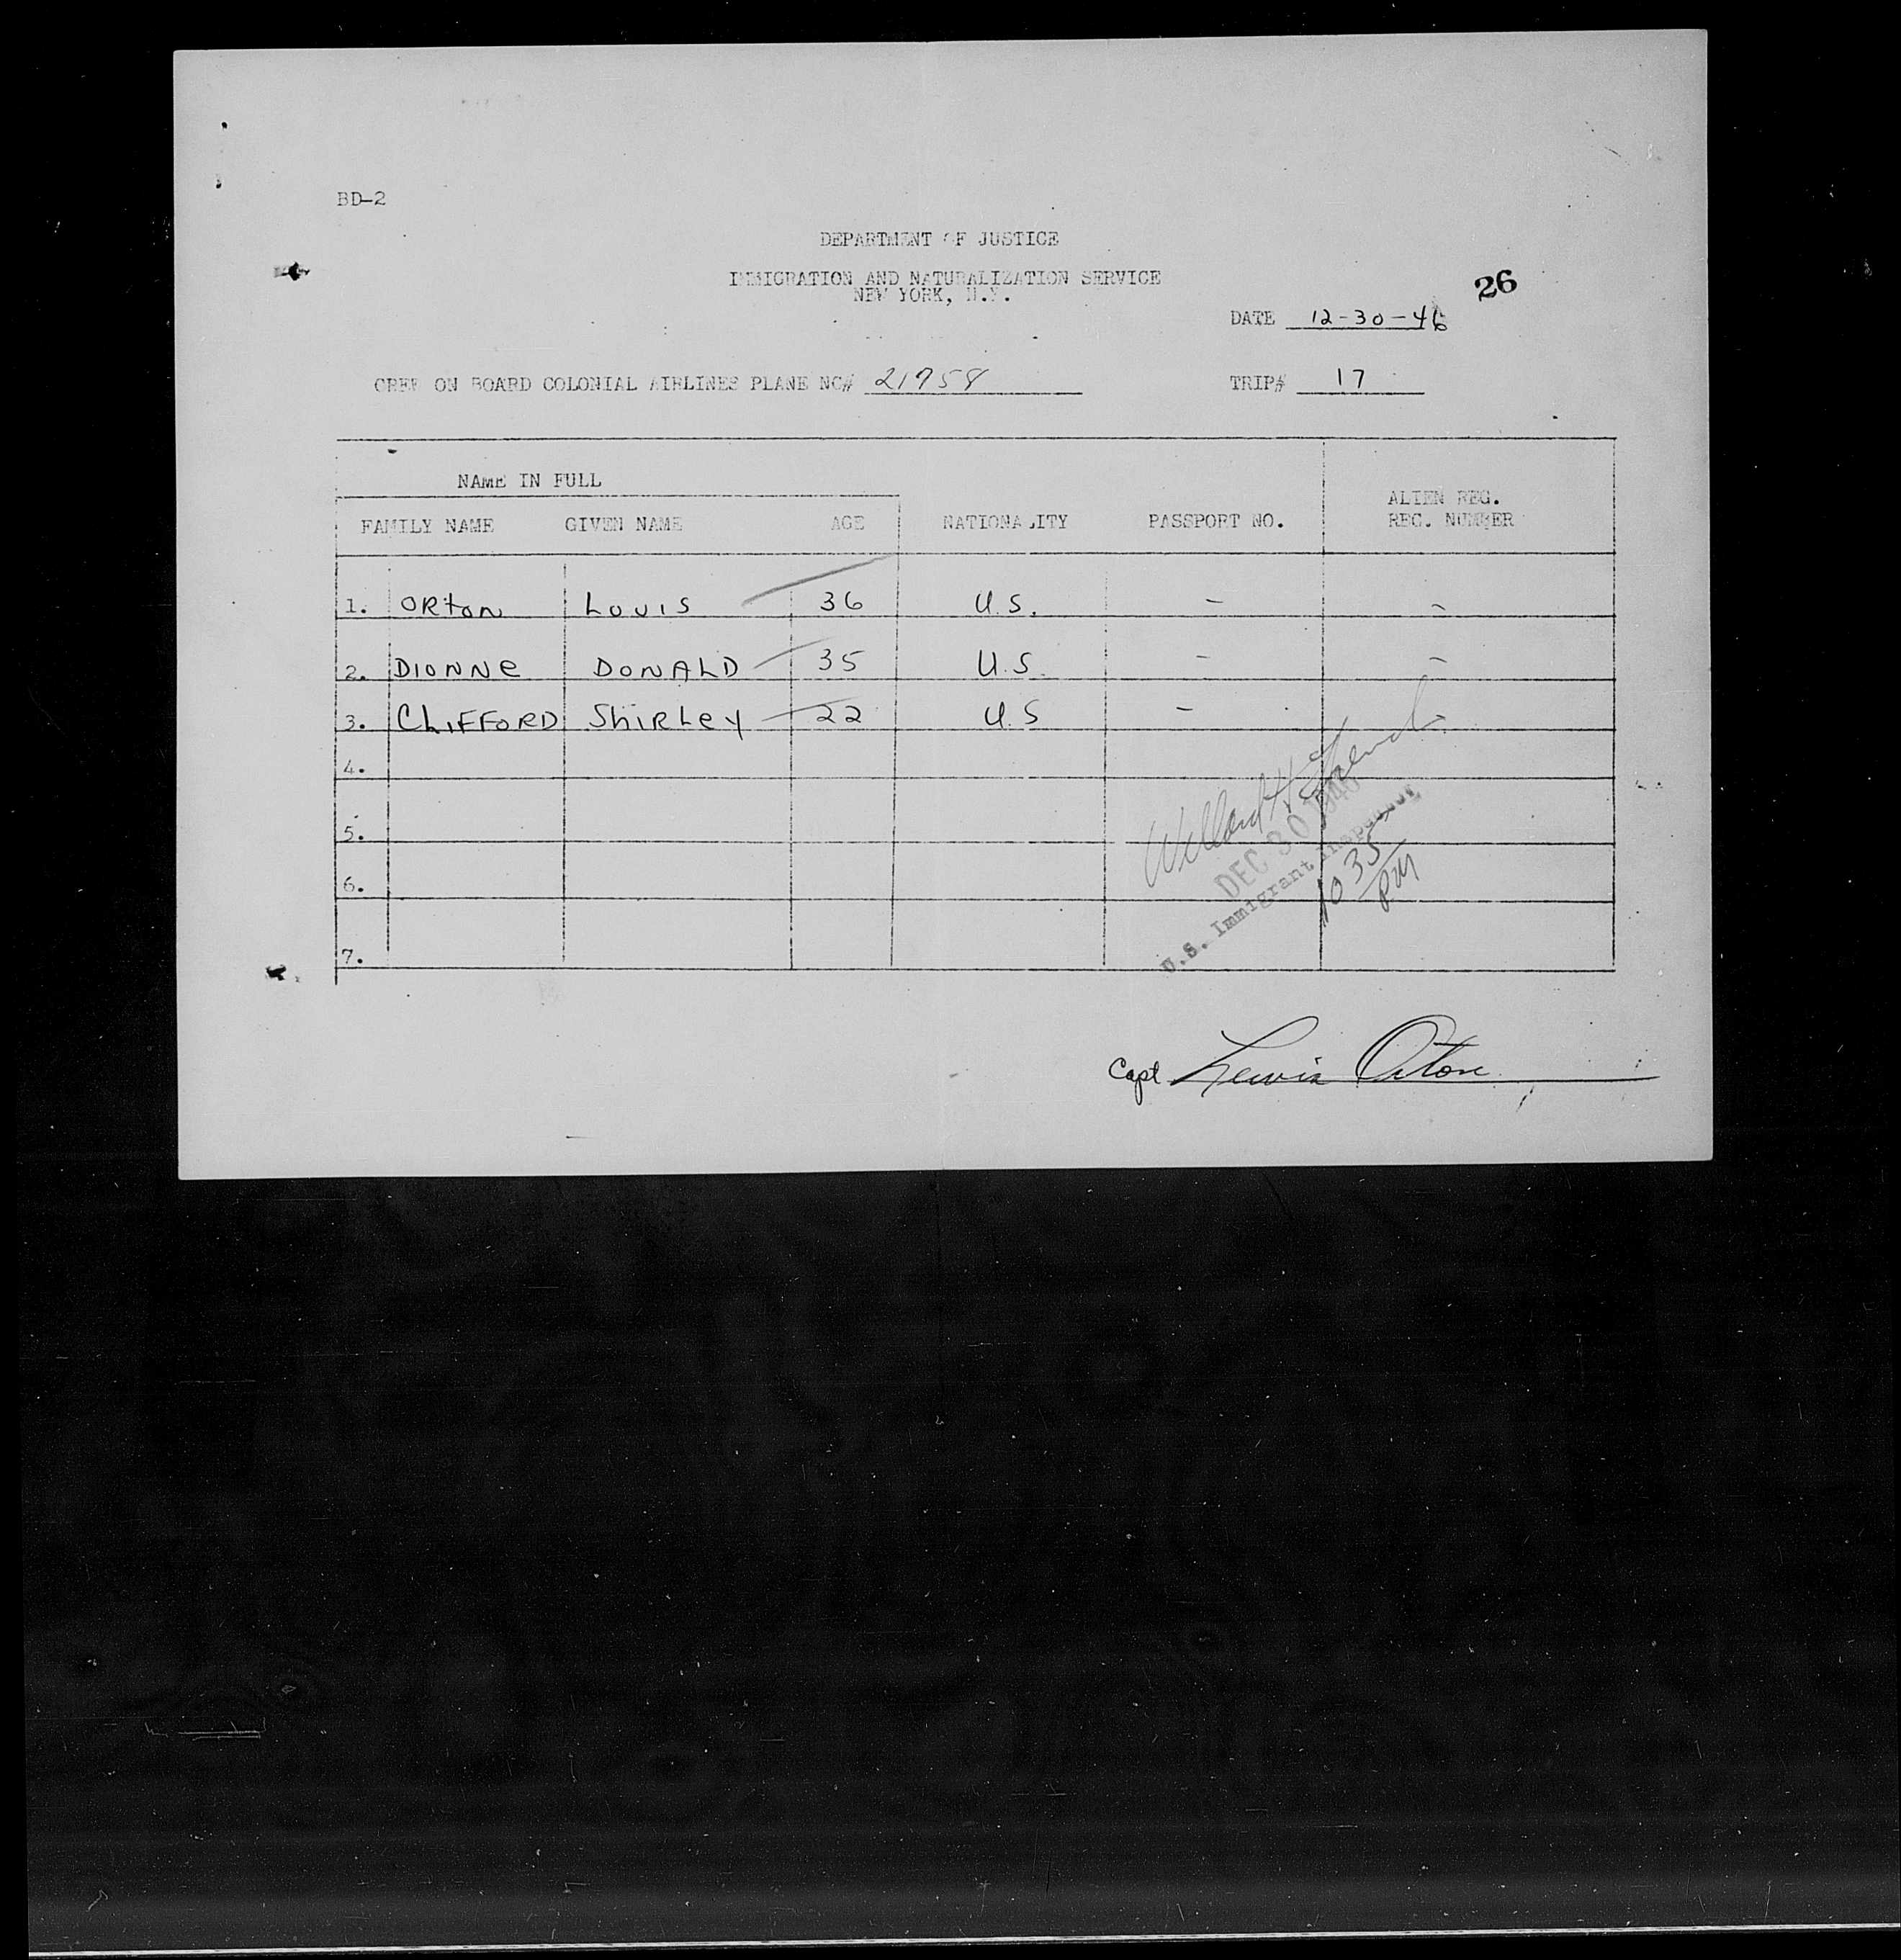 BD-2
DEPARTMENT OF JUSTICE
IMMIGRATION AND NATURALIZATION SERVICE
NEW YORK, N.Y.
26
DATE 12-30-46
CREW ON BOARD COLONIAL AIRLINES PLANE NC# 21758
TRIP# 17
NAME IN FULL
FAMILY NAME GIVEN NAME AGE NATIONALITY PASSPORT NO. ALIEN REG. REC. NUMBER
1. ORtON LOUIS 36 U.S. - -
2. DIONNe DONALD 35 U.S. - -
3. CLIFFORD ShIRLey 22 U.S - -
4.
5.
6.
7.
Willard H
DEC 30 1946
U.S. Immigrant Inspector
10 35 PM
Capt Lewis Orton